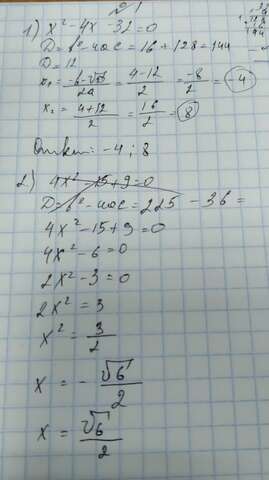 №1
1.) x² - 4x - 32 = 0
D = b² - 4ac = 16 + 128 = 144
D = 12
x₁ = (-b - √D)/2a = (4 - 12)/2 = -8/2 = -4
x₂ = (4 + 12)/2 = 16/2 = 8
Ответ: -4 ; 8
2.) 4x² - 15 + 9 = 0
D = b² - 4ac = 225 - 36 =
4x² - 15 + 9 = 0
4x² - 6 = 0
2x² - 3 = 0
2x² = 3
x² = 3/2
x = - √6/2
x = √6/2